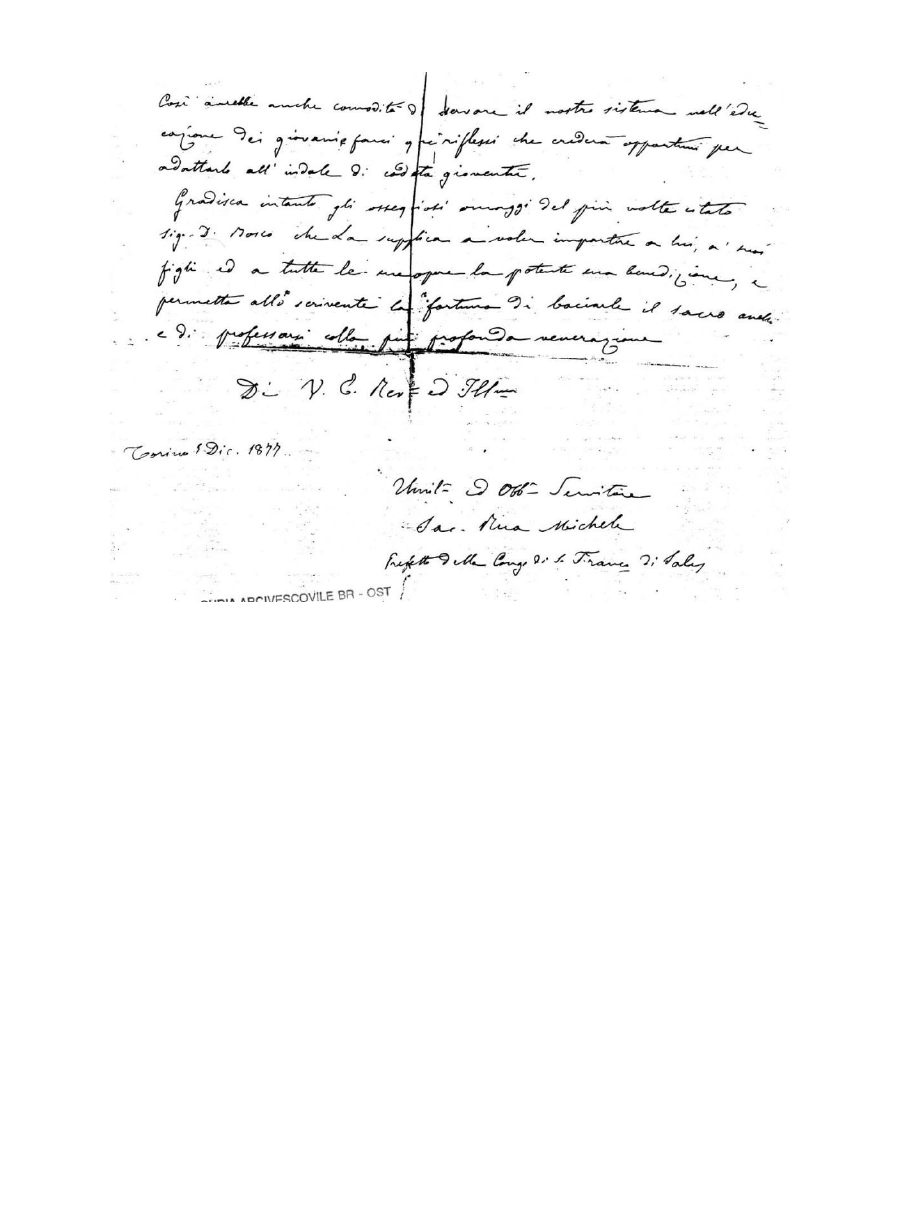 Così avrebbe anche comodità di     il nostro sistema nell'edu=
cazione dei giovani e farci que' riflessi che crederà opportuni per
adattarlo all'indole di codesta gioventù.
Gradisca intanto gli ossequiosi omaggi del più volte citato
Sig. D. Bosco che La supplica a voler impartire a lui, a' suoi
figli ed a tutte le sue opere la potente sua benedizione, e
permetta allo scrivente la fortuna di baciarle il sacro anello
e di professarsi colla più profonda venerazione
Di V. E. Rev.ma ed Ill.ma
Torino 5 Dic. 1877
Umil.mo ed Obb.mo Servitore
Sac. Rua Michele
Prefetto della Cong. di S. Franco di Sales
CURIA ARCIVESCOVILE BR - OST